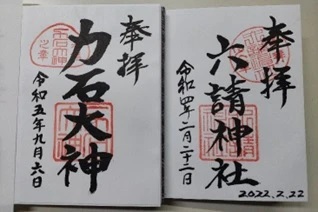 奉拝
力石大神
令和五年九月六日
奉拝
六請神社
令和四年二月二十二日
2022.2.22